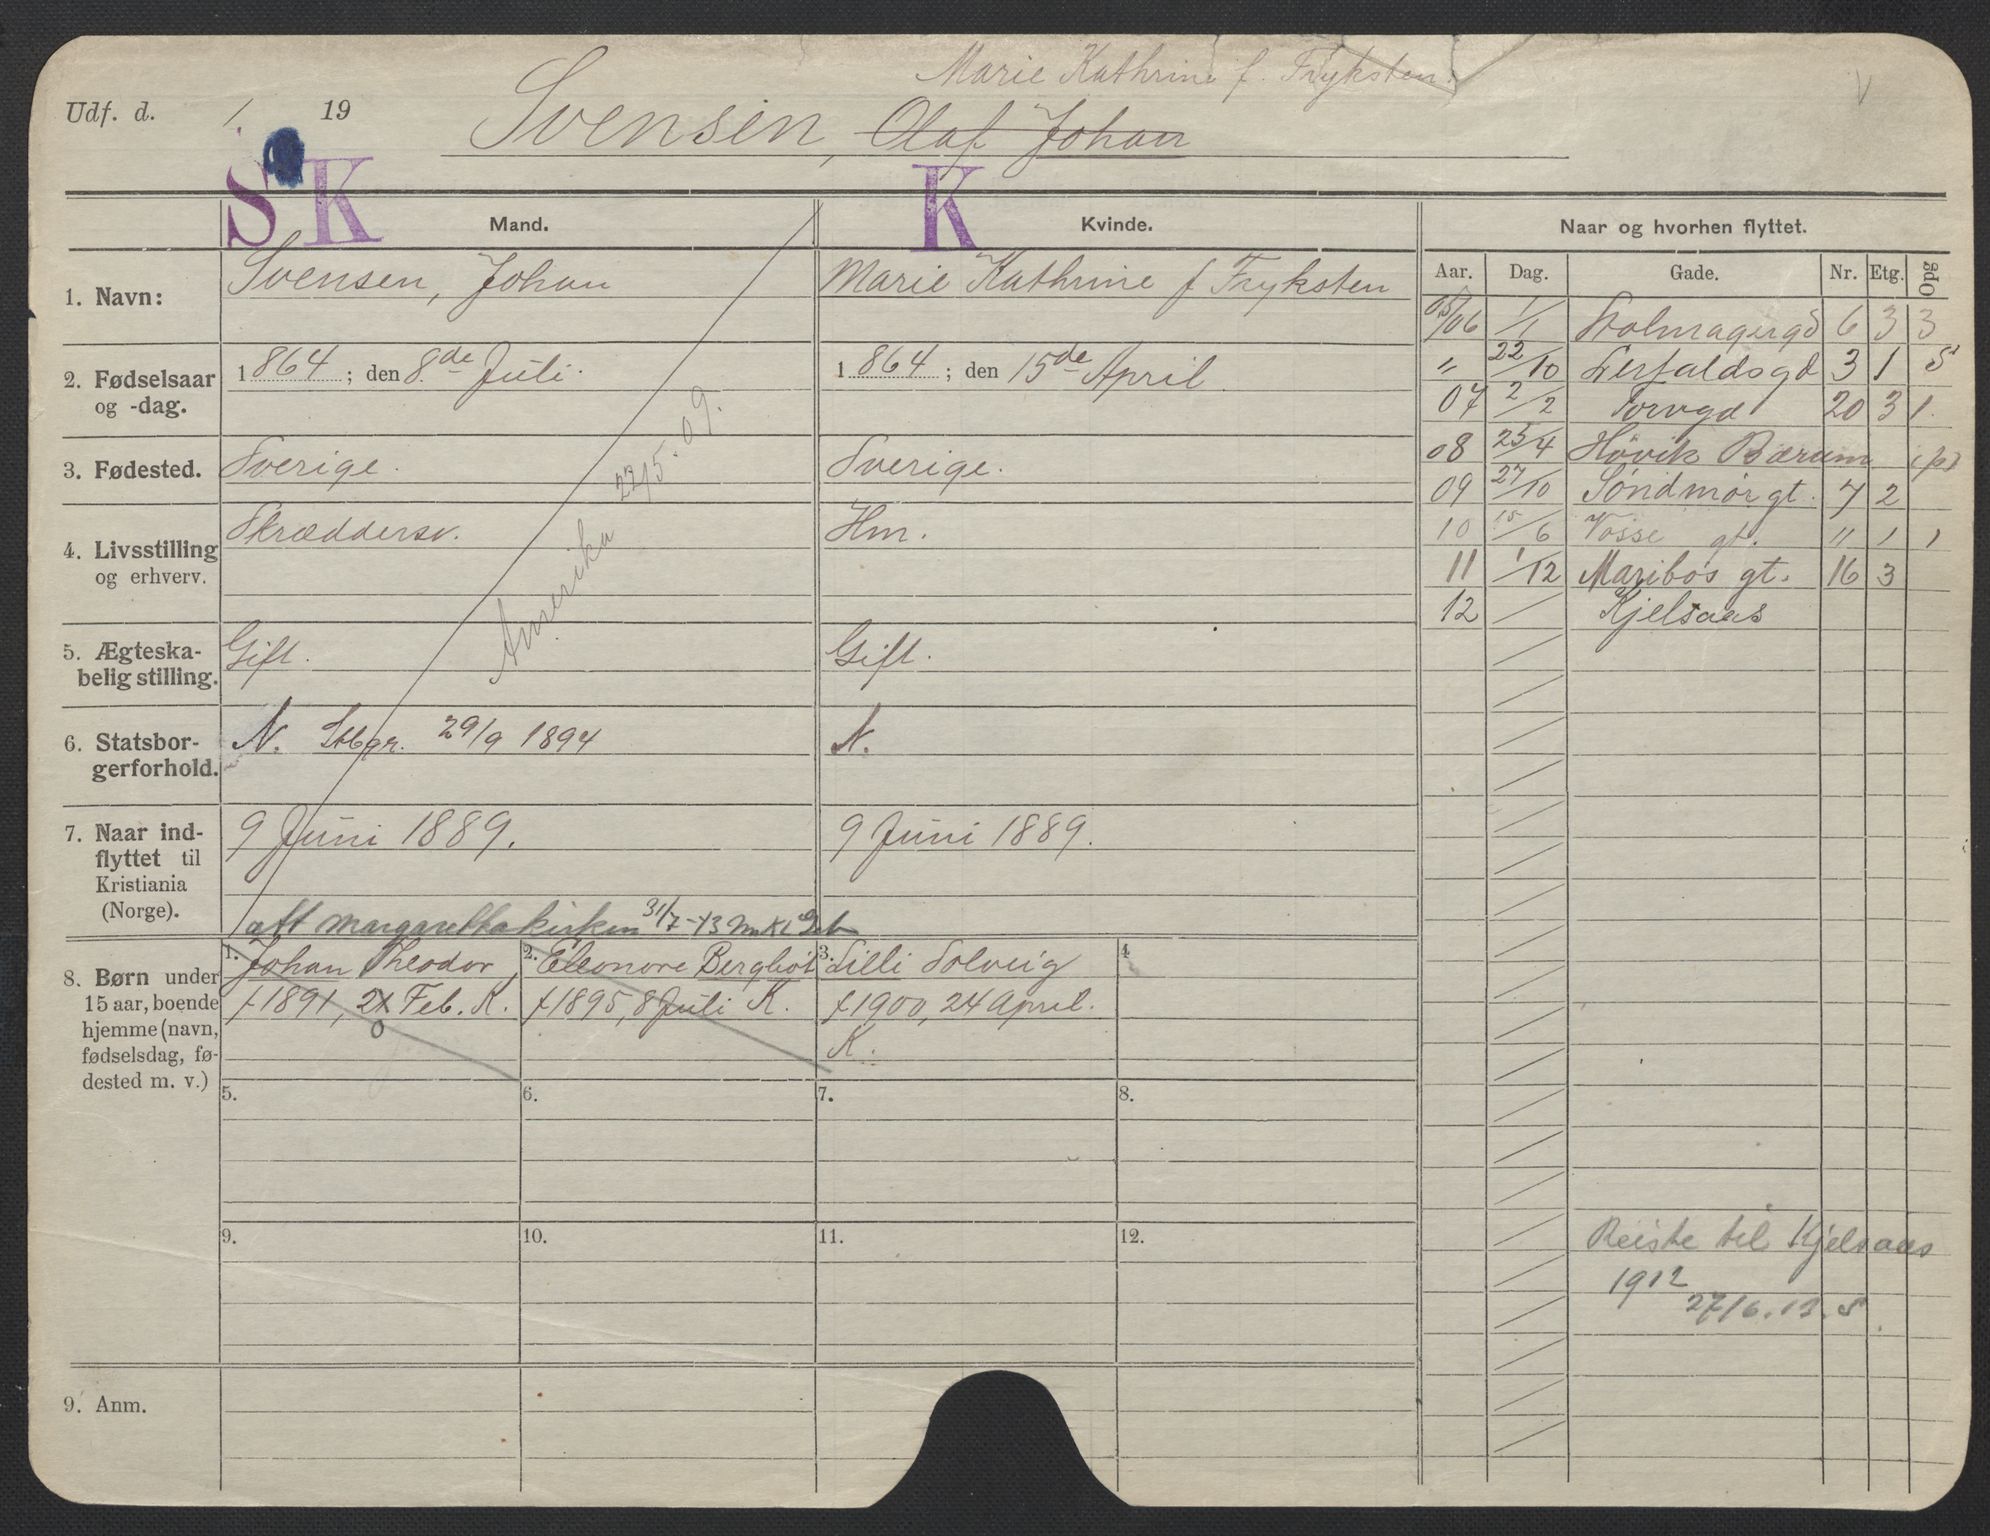 Marie Kathrine f. Fryksten.
Udf. d. / 19 Svensen, Olaf Johan
S K K
Mand. Kvinde. Naar og hvorhen flyttet.
Aar. Dag. Gade. Nr. Etg. Opg
1. Navn: Svensen, Johan Marie Kathrine f Fryksten
2. Fødselsaar og -dag. 1864; den 8de Juli. 1864; den 15de April.
3. Fødested. Sverige. Sverige.
4. Livsstilling og erhverv. Skræddersv. Hm.
Amerika 22/5. 09.
5. Ægteska-
belig stilling. Gift. Gift.
6. Statsbor-
gerforhold. N. Stbgr. 29/9 1894 N.
7. Naar ind-
flyttet til
Kristiania
(Norge). 9 Juni 1889. 9 Juni 1889.
att margarethakirken 31/7-13
05/06 1/1 Holmagergd 6 3 3
" 22/10 Lerfaldsgd 3 1 S
07 2/2 Torvgd 20 3 1.
08 25/4 Høvik Bærum (p)
09 27/10 Søndmørgt. 7 2
10 15/6 Vosse gt. " 1 1
11 1/12 Maribos gt. 16 3
12 / Kjelsaas
8. Børn under
15 aar, boende
hjemme (navn,
fødselsdag, fø-
dested m. v.)
1. Johan Theodor,
f 1891, 2 Feb. K.
2. Eleonore Bergliot
f 1895, 8 Juli K.
3. Lilli Solveig
f 1900, 24 April.
K.
4.
5. 6. 7. 8.
9. 10. 11. 12.
Reiste til Kjelsaas
1912
27/6. 13. S.
9. Anm.